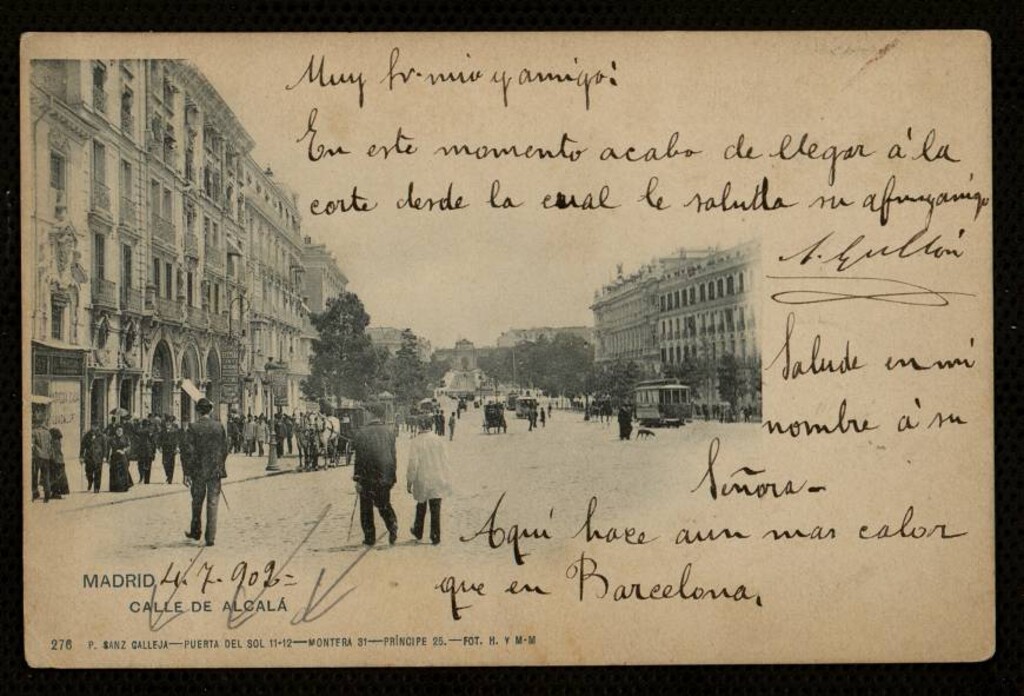 Muy Sr. mio y amigo:
En este momento acabo de llegar á la
corte desde la cual le saluda su afmo y amigo
A. Gullón
Salude en mi
nombre á su
Señora -
Aquí hace aun mas calor
que en Barcelona,
MADRID 4-7-902=
CALLE DE ALCALÁ
276 P. SANZ CALLEJA—PUERTA DEL SOL 11-12—MONTERA 31—PRÍNCIPE 25.—FOT. H. Y M-M